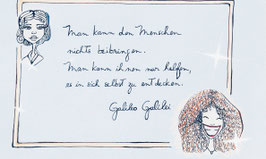 Man kann den Menschen
nichts beibringen.
Man kann ihnen nur helfen,
es in sich selbst zu entdecken.
Galileo Galilei